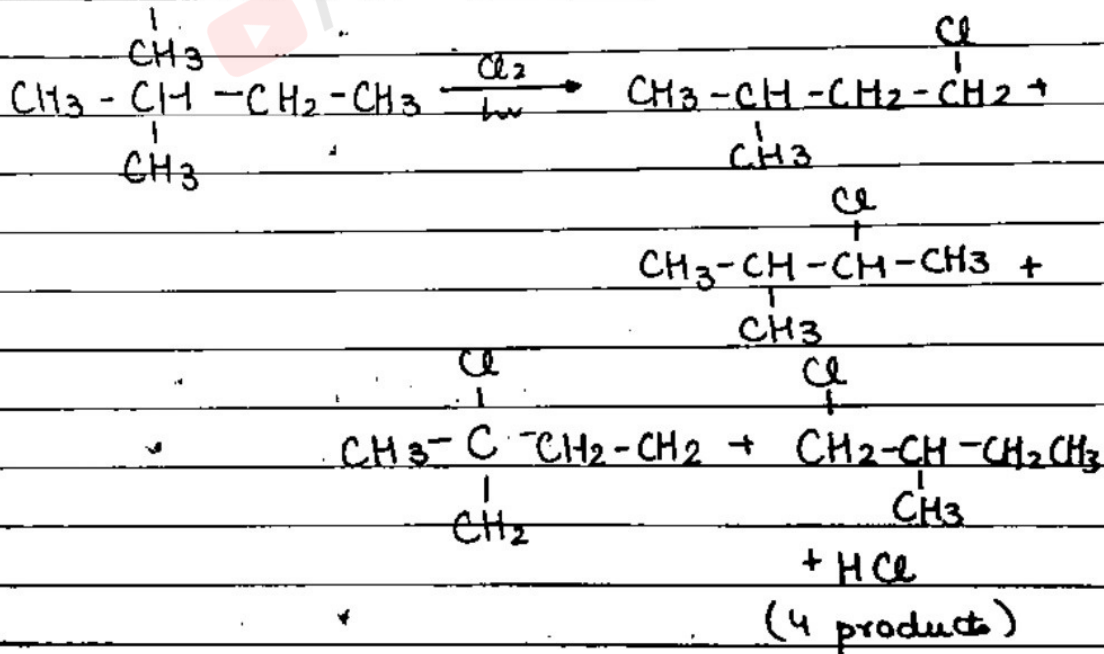 CH3
CH3 - CH - CH2 - CH3 Cl2 hν → CH3 - CH - CH2 - CH2 +
Cl
CH3
CH3
Cl
CH3 - CH - CH - CH3 +
CH3
Cl
Cl
CH3 - C - CH2 - CH2 + CH2 - CH - CH2CH3
CH2
CH3
+ HCl
(4 products)